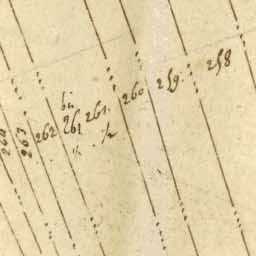 264
263
262
bis
261
261.
260
259.
258